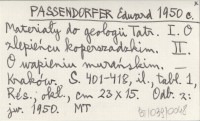 PASSENDORFER Edward 1950 c.
Materiały do geologii Tatr. I. O
zlepieńcu koperszadzkim. II.
O wapieniu murańskim. —
Kraków. S. 401-418, il., tabl. 1,
Rés., okł., cm 23 x 15. Odb. z:
jw. 1950. MT